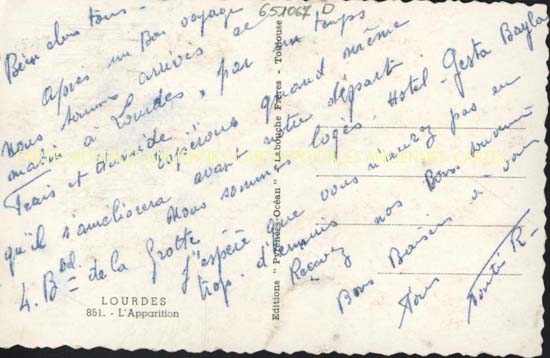 651067 D
Bien chers tous -
Après un Bon voyage
nous sommes arrivés ce
matin à Lourdes, par un temps
Frais et humide espérons quand même
qu'il s'améliorera avant notre départ
Nous sommes logés. Hotel - Gesta Bayla
4. Bd de la Grotte
J'espère que vous n'aurez pas eu
trop d'ennuis
Recevez nos Bons souvenirs
Bons Baisers à vous
Tous
R -
LOURDES
851. - L'Apparition
Editions "Pyrénées-Océan" Labouche Frères - Toulouse